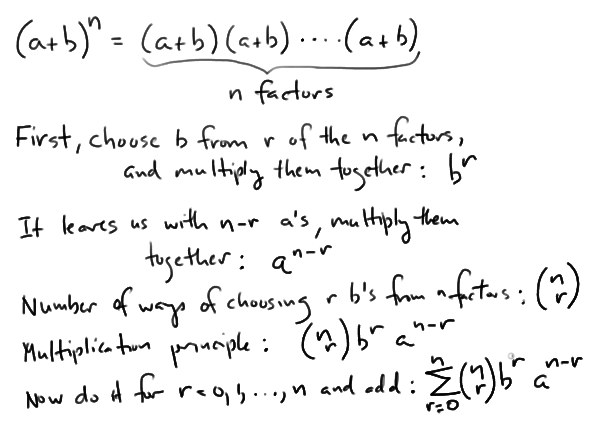 (a+b)^n = (a+b)(a+b)····(a+b)
n factors
First, choose b from r of the n factors,
and multiply them together: b^r
It leaves us with n-r a's, multiply them
together: a^{n-r}
Number of ways of choosing r b's from n factors: \binom{n}{r}
Multiplication principle: \binom{n}{r} b^r a^{n-r}
Now do it for r=0,1,...,n and add: \sum_{r=0}^{n} \binom{n}{r} b^r a^{n-r}